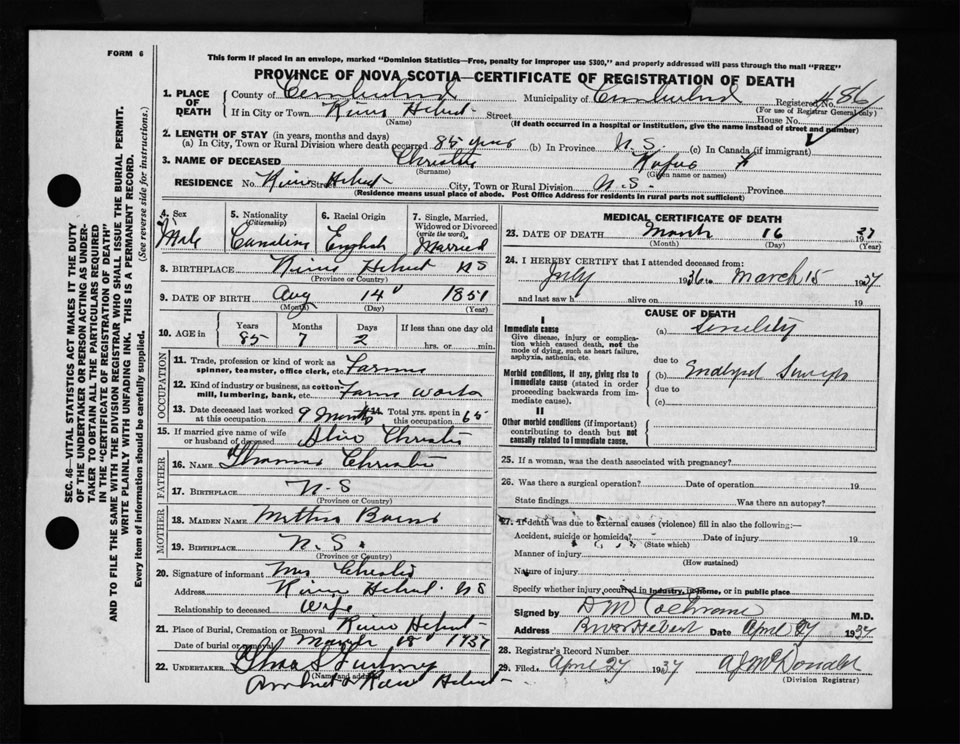 FORM 6
This form if placed in an envelope, marked "Dominion Statistics—Free, penalty for improper use $300," and properly addressed will pass through the mail "FREE"
PROVINCE OF NOVA SCOTIA—CERTIFICATE OF REGISTRATION OF DEATH
1. PLACE OF DEATH
County of Cumberland Municipality of Cumberland Registered No. 486
(For use of Registrar General only)
If in City or Town River Hebert Street House No.
(Name) (If death occurred in a hospital or institution, give the name instead of street and number)
2. LENGTH OF STAY (in years, months and days)
(a) In City, Town or Rural Division where death occurred 85 years (b) In Province N.S. (c) In Canada (if immigrant)
3. NAME OF DECEASED Christie Rufus
(Surname) (Given name or names)
RESIDENCE No. River Street Hebert City, Town or Rural Division N.S. Province
(Residence means usual place of abode. Post Office Address for residents in rural parts not sufficient)
SEC. 46—VITAL STATISTICS ACT MAKES IT THE DUTY
OF THE UNDERTAKER OR PERSON ACTING AS UNDER-
TAKER TO OBTAIN ALL THE PARTICULARS REQUIRED
IN THE "CERTIFICATE OF REGISTRATION OF DEATH"
AND TO FILE THE SAME WITH THE DIVISION REGISTRAR WHO SHALL ISSUE THE BURIAL PERMIT.
WRITE PLAINLY WITH UNFADING INK. THIS IS A PERMANENT RECORD.
Every item of information should be carefully supplied. (See reverse side for instructions.)
4. Sex
Male
5. Nationality
(Citizenship)
Canadian
6. Racial Origin
English
7. Single, Married,
Widowed or Divorced
(write the word)
Married
8. BIRTHPLACE River Hebert NS
(Province or Country)
9. DATE OF BIRTH Aug 14 1851
(Month) (Day) (Year)
10. AGE in
Years Months Days If less than one day old
85 7 2 hrs. or min.
OCCUPATION
11. Trade, profession or kind of work as Farmer
spinner, teamster, office clerk, etc.
12. Kind of industry or business, as cotton Farm work
mill, lumbering, bank, etc.
13. Date deceased last worked 9 Months 14. Total yrs. spent in 65
at this occupation this occupation
15. If married give name of wife
or husband of deceased Christie
FATHER
16. NAME Thomas Christie
17. BIRTHPLACE N-S
(Province or Country)
MOTHER
18. MAIDEN NAME
19. BIRTHPLACE N.S.
(Province or Country)
20. Signature of informant Mrs Christie
Address River Hebert NS
Relationship to deceased Wife
21. Place of Burial, Cremation or Removal River Hebert
Date of burial or removal March 18 1937
22. UNDERTAKER
(Name and address)
Amherst River Hebert
MEDICAL CERTIFICATE OF DEATH
23. DATE OF DEATH March 16 1937
(Month) (Day) (Year)
24. I HEREBY CERTIFY that I attended deceased from:
July 1936 to March 15 1937
and last saw h alive on 19
CAUSE OF DEATH
I
Immediate cause
Give disease, injury or complica-
tion which caused death, not the
mode of dying, such as heart failure,
asphyxia, asthenia, etc.
(a) Senility
due to
Morbid conditions, if any, giving rise to
immediate cause (stated in order
proceeding backwards from im-
mediate cause).
(b)
due to
(c)
II
Other morbid conditions (if important)
contributing to death but not
causally related to immediate cause.
25. If a woman, was the death associated with pregnancy?
26. Was there a surgical operation? Date of operation 19
State findings Was there an autopsy?
27. If death was due to external causes (violence) fill in also the following:—
Accident, suicide or homicide? Date of injury 19
(State which)
Manner of injury
(How sustained)
Nature of injury
Specify whether injury occurred in industry, in home, or in public place
Signed by D M Cochrane M.D.
Address River Hebert Date April 27 1937
28. Registrar's Record Number
29. Filed April 27 1937 A J McDonald
(Division Registrar)